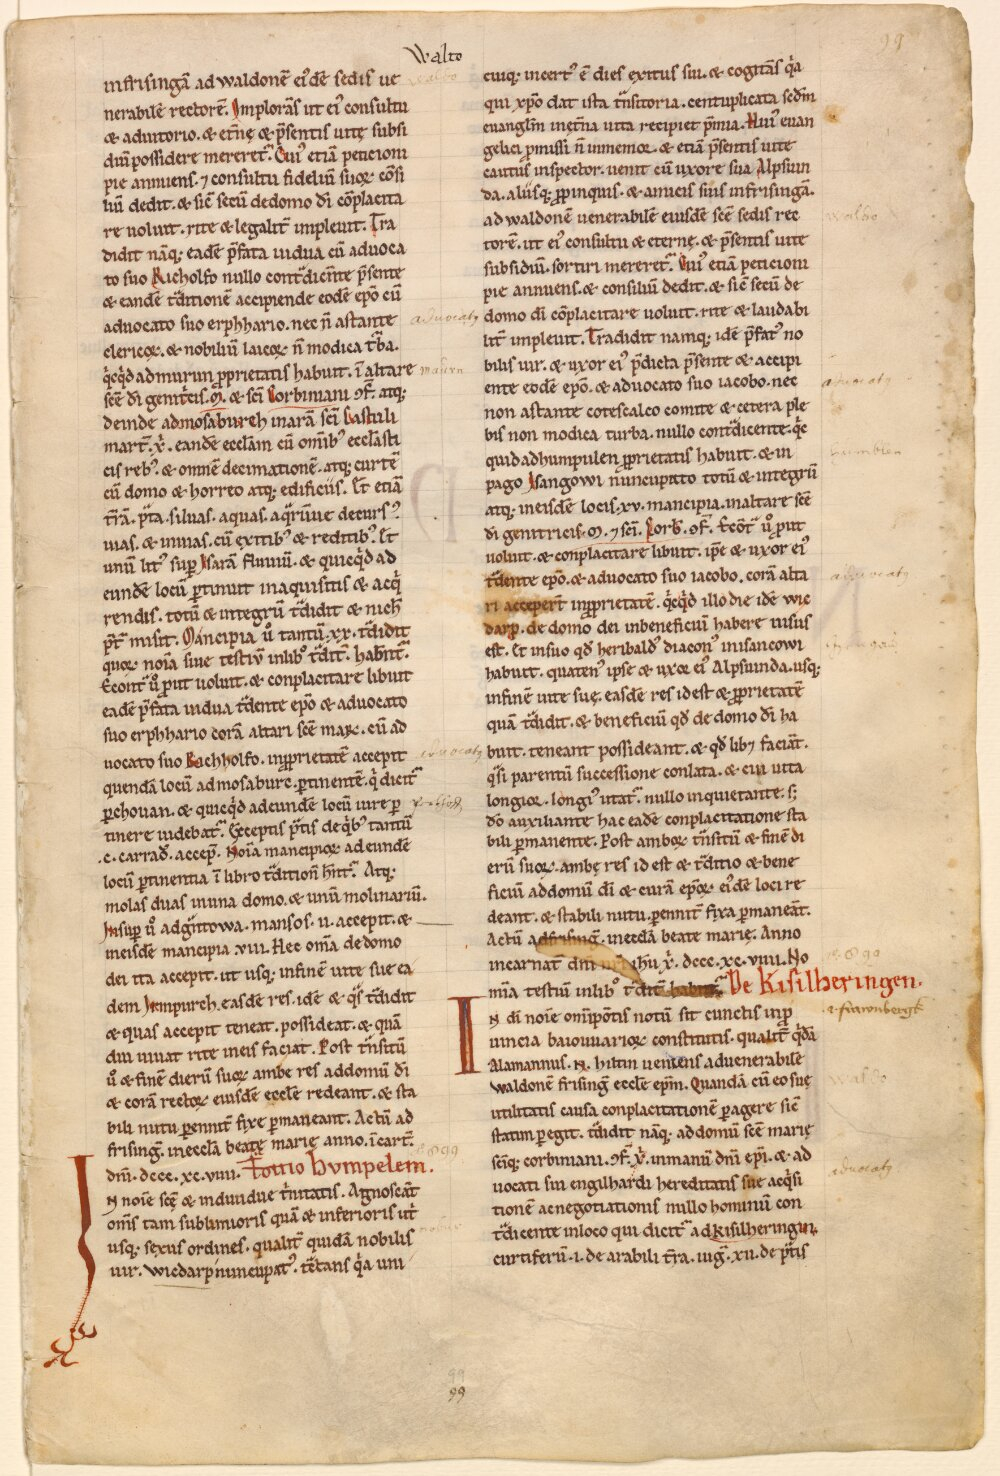 99
Walto
infrisingā ad waldonē ei'dē sedis ue
nerabilē rectorē. Imploras̄ ut ei' consultu
& adiutorio. & et̄nę & p̄sentis uitę subsi
diū possidere mereret͛. Cui' etiā peticioni
pie annuens. ⁊ consultu fideliū suoꝝ cōsi
liū dedit. & sic̄ secū dedomo dī cōplacita
re uoluit. rite & legalit͛ impleuit. Tra
didit nāq; eadē p̄fata uidua cū aduoca
to suo Richolfo nullo contͣdicēte p̄sente
& eandē tͣditionē accipiende eodē ep̄o cū
aduocato suo erphhario. nec n̄ astante
clericoꝝ. & nobiliū laicoꝝ n̄ modica t̄ba.
q̇cq̇d admurun ꝓprietatis habuit. ī altare
sc̄e dī genit͛cis. M. & sc̄i Corbiniani ɔf̄. atq;
deinde admosabureh inarā sc̄i Castuli
mart̄. x̄. eandē eccl̄am cū om̄ib' eccl̄asti
cis reb'. & omnē decimationē. atq; curtē
cū domo & horreo atq; edificiis. Et etiā
t̄rā. p̄ta. siluas. aquas. aq̇rūue decurs'.
uias. & inuias. cū exitib' & reditib'. Et
unū lit' sup̄ Isarā fluuiū. & quicq̇d ad
eundē locū ꝑtinuit inaquisitis & acq̇
rendis. totū & integrū tͣdidit & nich̄
p̄t̄ misit. Mancipia u̇ tantū. xx. tͣdidit
quoꝝ noīa siue testiū inlib' tͣdit͛. hab̄nt͛.
Ecōnt͛ u̇ ꝓut uoluit. & conplacitare libuit
eadē p̄fata uidua tͣdente ep̄o & aduocato
suo erphhario corā altari sc̄e mar̄. cū ad
uocato suo Richholfo. inꝓprietatē accepit
quendā locū admosaburc. ꝑtinentē. q̇ dicit͛
ꝑchouan. & quicq̇d adeundē locū iure ꝑ
tinere uidebat͛. Exceptis p̄tis deq̇b' tantū
.c. carrad̄. accep̄. Noīa mancipioꝝ adeundē
locū ꝑtinentia ī libro tͣdition̄ hn̄t͛. Atq;
molas duas inuna domo. & unū molinariū.
Insup̄ u̇ adgittowa. mansos. ii. accepit. &
ineisdē mancipia. viii. Hec om̄a dedomo
dei ita accepit. ut usq; infinē uite sue ea
dem hempureh. easdē res. idē & q̇s tͣdidit
& quas accepit teneat. possideat. & quā
diu uiuat rite ineis faciat. Post tͣnsitū
u̇ & finē dierū suoꝝ ambe res addomū dī
& corā rectoꝝ eiusdē eccl̄e redeant. & sta
bili nutu ꝑennit͛ fixe ꝑmaneant. Actū ad
frising̅. ineccl̄a beatę marię anno. īcarn̄.
dn̄i. dccc. xc. viiii. Tomo hvmpelem.
IN noīe sc̄ę & indiuidue t͛nitatis. Agnoscāt
om̄s tam sublimioris quā & inferioris ut͛
usq; sexus ordines. qualit͛ quidā nobilis
uir. wicdarp nuncupat'. t͛ctans q̇a uni
cuiq; incert' ē dies exitus sui. & cogitās q̇a
qui xp̄o dat ista tͣnsitoria. centuplicata sedm̄
euangl̄m inet͛na uita recipiet p̄mia. Hui' euan
gelici ꝓmissi n̄ inmemoꝝ. & etiā p̄sentis uite
cautius inspector. uenit cū uxore sua Alpsuin
da. aliisq; ꝓpinquis. & amicis suis infrisingā.
ad waldonē uenerabilē eiusdē sc̄e sedis rec
torē. ut ei' consultu & eternę. & p̄sentis uite
subsidiū. sortiri mereret͛. Cui' etiā peticioni
pie annuens. & consiliū dedit. & sic̄ secū de
domo dī cōplacitare uoluit. rite & laudabi
lit͛ impleuit. Tradidit namq; idē p̄fat' no
bilis uir. & uxor ei' p̄dicta p̄sente & accipi
ente eodē ep̄o. & aduocato suo iacobo. nec
non astante cotescalco comite & cetera ple
bis non modica turba. nullo contͣdicente. q̇c
quid adhumpulen ꝓprietatis habuit. & in
pago Isangowi nuncupato totū & integrū
atq; ineisdē locis. xv. mancipia. inaltare sc̄e
dī genitricis. M. ⁊ sc̄i. Corb̄. ɔf̄. Ecōt͛ u̇ ꝓut
uoluit. & conplacitare libuit. ip̄e & uxor ei'
tͣdente ep̄o. & aduocato suo iacobo. corā alta
ri accepert̄ inꝓprietatē. q̇cq̇d illo die idē wic
darp̄. de domo dei inbeneficiū habere uisus
est. Et insuo qd̄ heribald' diacon' inisancowi
habuit. quaten' ipse & uxor ei' Alpsuinda. usq;
infinē uite suę. easdē res id est & ꝓprietatē
quā tͣdidit. & beneficiū qd̄ de domo dī ha
buit. teneant possideant. & qd̄ lib& faciāt.
q̇si parentū successione conlata. & cui uita
longior. longi' utat͛. nullo inquietante. s;
dō auxiliante hac eadē conplacitatione sta
bili ꝑmanente. Post amboꝝ tͣnsitū & finē di
erū suoꝝ. ambę res id est & tͣditio & bene
ficiū addomū dī & curā ep̄oꝝ ei'dē loci re
deant. & stabili nutu. ꝑennit͛ fixa ꝑmaneāt.
Actū adfrising̅. ineccl̄a beate marię. Anno
incarnat̄ dn̄i ih̄u x̄. dccc. xc. viiii. No
mīa testiū inlib' tͣdit͛ habn̄t͛. De Kisilheringen.
IN dī noīe om̄ipōtis notū sit cunctis inꝓ
uincia baiouuarioꝝ constitutis. qualit͛ q̇dā
Alamannus. N. hiltin ueniens aduenerabilē
waldonē frising̅ eccl̄e ep̄m. Quandā cū eo suę
utilitatis causa conplacitationē ꝑagere sic̄
statim ꝑegit. tͣdidit nāq; addomū sc̄e marię
sc̄iq; corbiniani. ɔf̄. x̄. inmanū dn̄i ep̄i. & ad
uocati sui engilhardi hereditatis sue acq̇si
tionē acnegotiationis nullo hominū con
tͣdicente inloco qui dicit͛ ad kisilheringun.
curtiferū. i. de arabili t̄ra. iug̅. xii. de p̄tis
advocaty
advocaty
waldo
advocaty
advocaty
waldo
advocaty
99
99